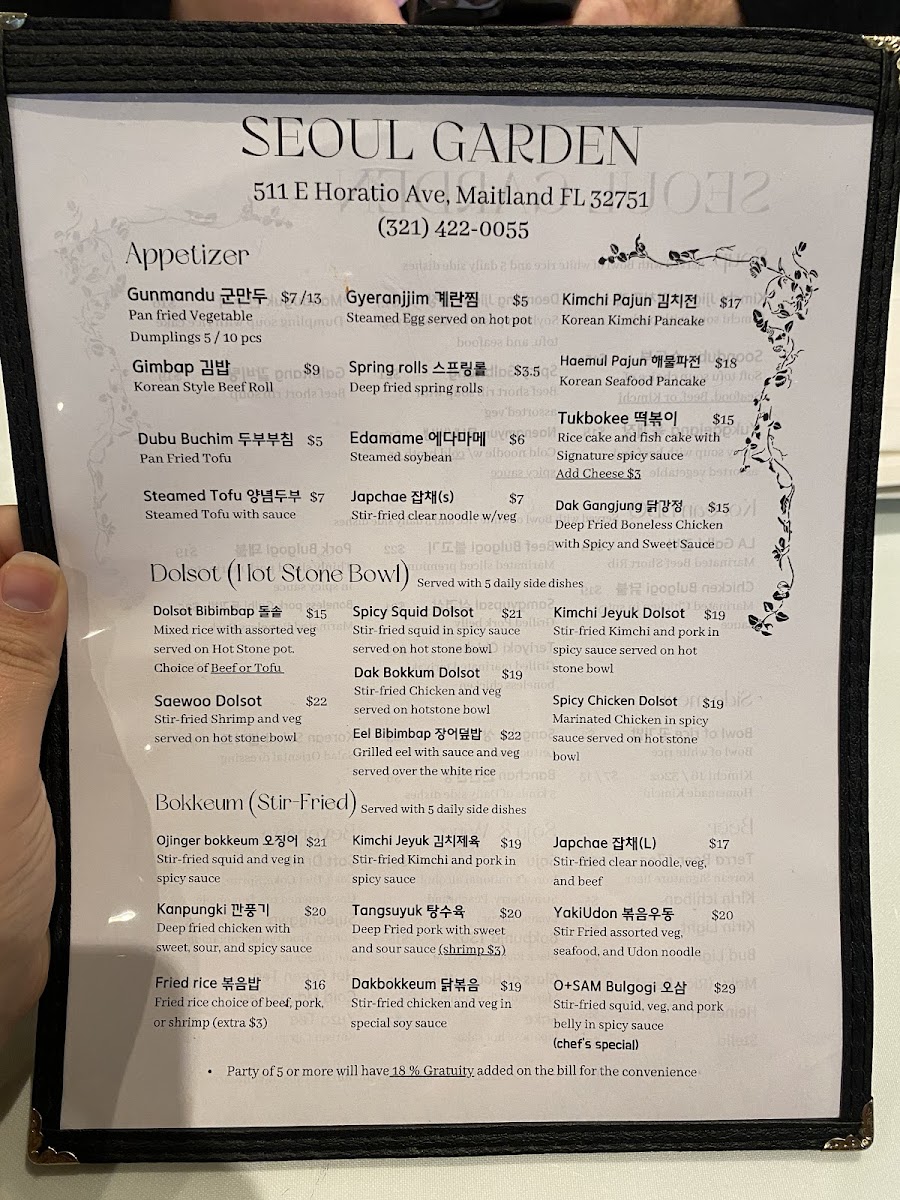 SEOUL GARDEN
511 E Horatio Ave, Maitland FL 32751
(321) 422-0055
Appetizer
Gunmandu 군만두 $7 /13
Pan fried Vegetable
Dumplings 5 / 10 pcs
Gimbap 김밥 $9
Korean Style Beef Roll
Dubu Buchim 두부부침 $5
Pan Fried Tofu
Steamed Tofu 양념두부 $7
Steamed Tofu with sauce
Gyeranjjim 계란찜 $5
Steamed Egg served on hot pot
Spring rolls 스프링롤 $3.5
Deep fried spring rolls
Edamame 에다마메 $6
Steamed soybean
Japchae 잡채(s) $7
Stir-fried clear noodle w/veg
Kimchi Pajun 김치전 $17
Korean Kimchi Pancake
Haemul Pajun 해물파전 $18
Korean Seafood Pancake
Tukbokee 떡볶이 $15
Rice cake and fish cake with
Signature spicy sauce
Add Cheese $3
Dak Gangjung 닭강정 $15
Deep Fried Boneless Chicken
with Spicy and Sweet Sauce
Dolsot (Hot Stone Bowl) Served with 5 daily side dishes
Dolsot Bibimbap 돌솥 $15
Mixed rice with assorted veg
served on Hot Stone pot.
Choice of Beef or Tofu
Saewoo Dolsot $22
Stir-fried Shrimp and veg
served on hot stone bowl
Spicy Squid Dolsot $21
Stir-fried squid in spicy sauce
served on hot stone bowl
Dak Bokkum Dolsot $19
Stir-fried Chicken and veg
served on hotstone bowl
Eel Bibimbap 장어덮밥 $22
Grilled eel with sauce and veg
served over the white rice
Kimchi Jeyuk Dolsot $19
Stir-fried Kimchi and pork in
spicy sauce served on hot
stone bowl
Spicy Chicken Dolsot $19
Marinated Chicken in spicy
sauce served on hot stone
bowl
Bokkeum (Stir-Fried) Served with 5 daily side dishes
Ojinger bokkeum 오징어 $21
Stir-fried squid and veg in
spicy sauce
Kanpungki 깐풍기 $20
Deep fried chicken with
sweet, sour, and spicy sauce
Fried rice 볶음밥 $16
Fried rice choice of beef, pork,
or shrimp (extra $3)
Kimchi Jeyuk 김치제육 $19
Stir-fried Kimchi and pork in
spicy sauce
Tangsuyuk 탕수육 $20
Deep Fried pork with sweet
and sour sauce (shrimp $3)
Dakbokkeum 닭볶음 $19
Stir-fried chicken and veg in
special soy sauce
Japchae 잡채(L) $17
Stir-fried clear noodle, veg,
and beef
YakiUdon 볶음우동 $20
Stir Fried assorted veg,
seafood, and Udon noodle
O+SAM Bulgogi 오삼 $29
Stir-fried squid, veg, and pork
belly in spicy sauce
(chef's special)
• Party of 5 or more will have 18 % Gratuity added on the bill for the convenience